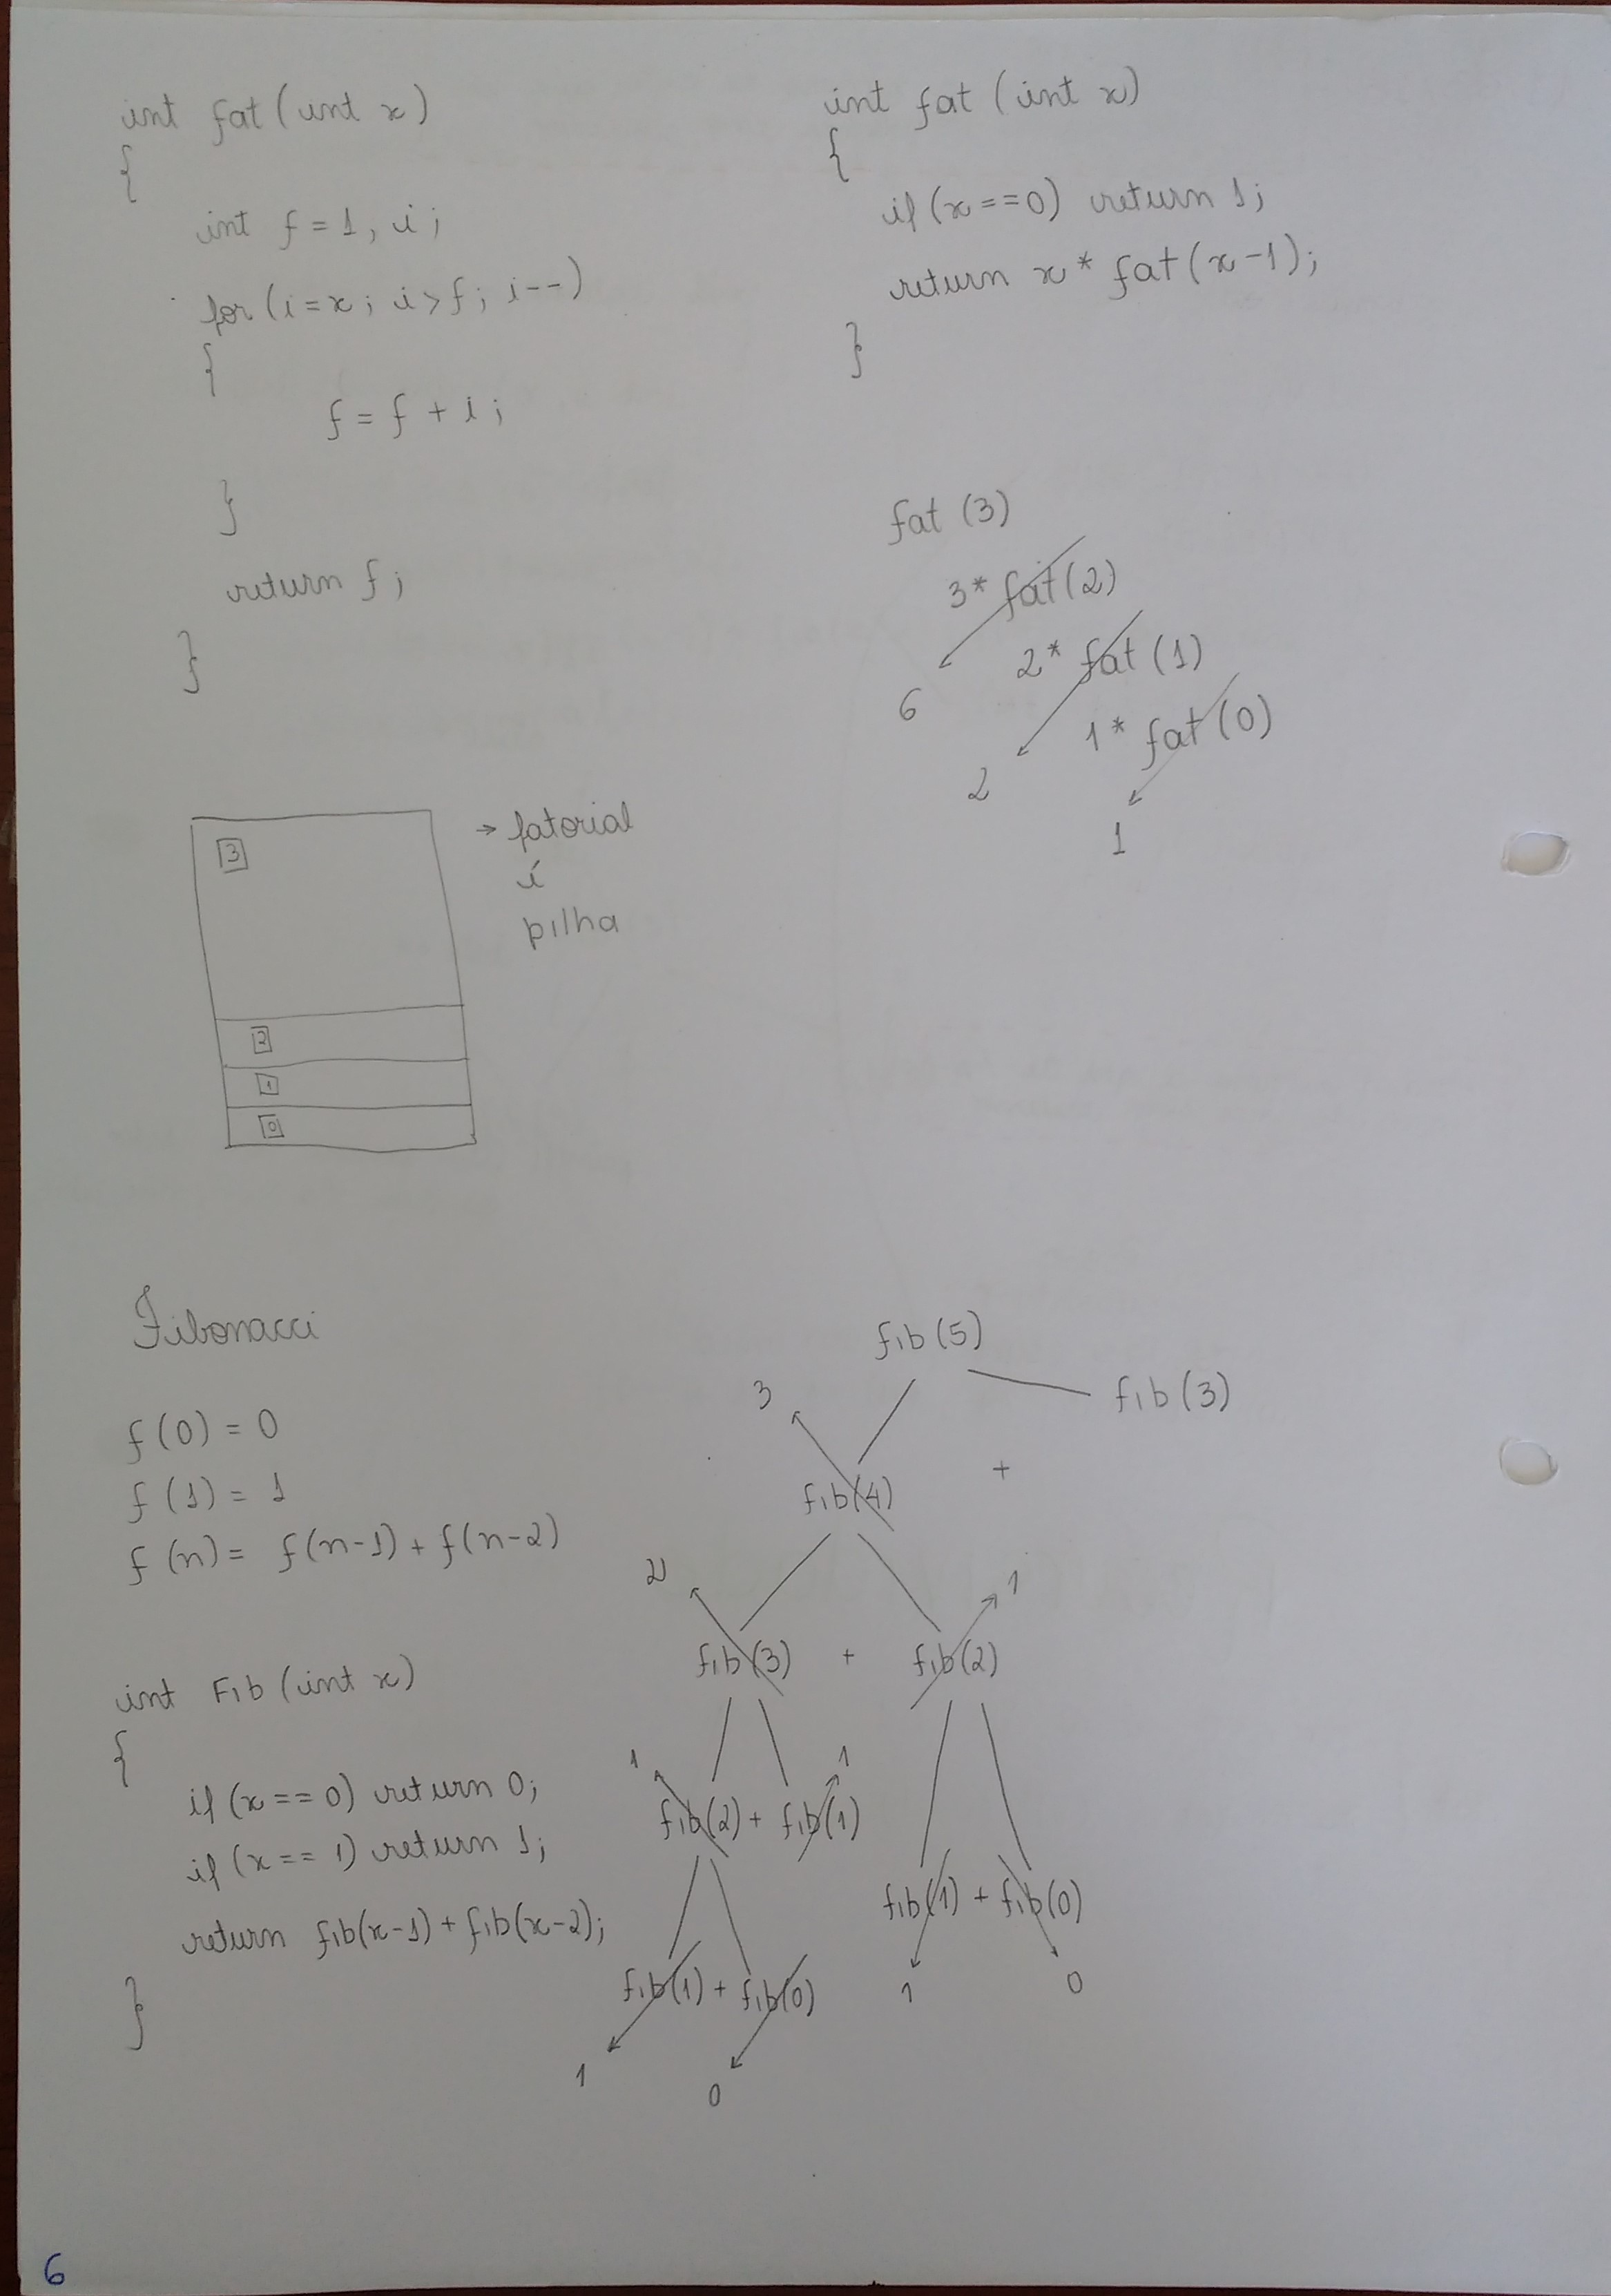 int fat (int x)
{
int f = 1, i ;
for (i = x ; i > f ; i--)
{
f = f + i ;
}
return f ;
}
int fat (int x)
{
if (x == 0) return 1 ;
return x * fat (x-1) ;
}
fat (3)
3 * fat (2)
6
2 * fat (1)
2
1 * fat (0)
1
3
2
1
0
→ fatorial
é
pilha
Fibonacci
f (0) = 0
f (1) = 1
f (n) = f(n-1) + f(n-2)
int Fib (int x)
{
if (x == 0) return 0 ;
if (x == 1) return 1 ;
return fib(x-1) + fib(x-2) ;
}
fib (5)
3
fib (3)
fib(4) +
2
1
fib(3) + fib(2)
1
1
fib(2) + fib(1)
fib(1) + fib(0)
1
0
fib(1) + fib(0)
1
0
6